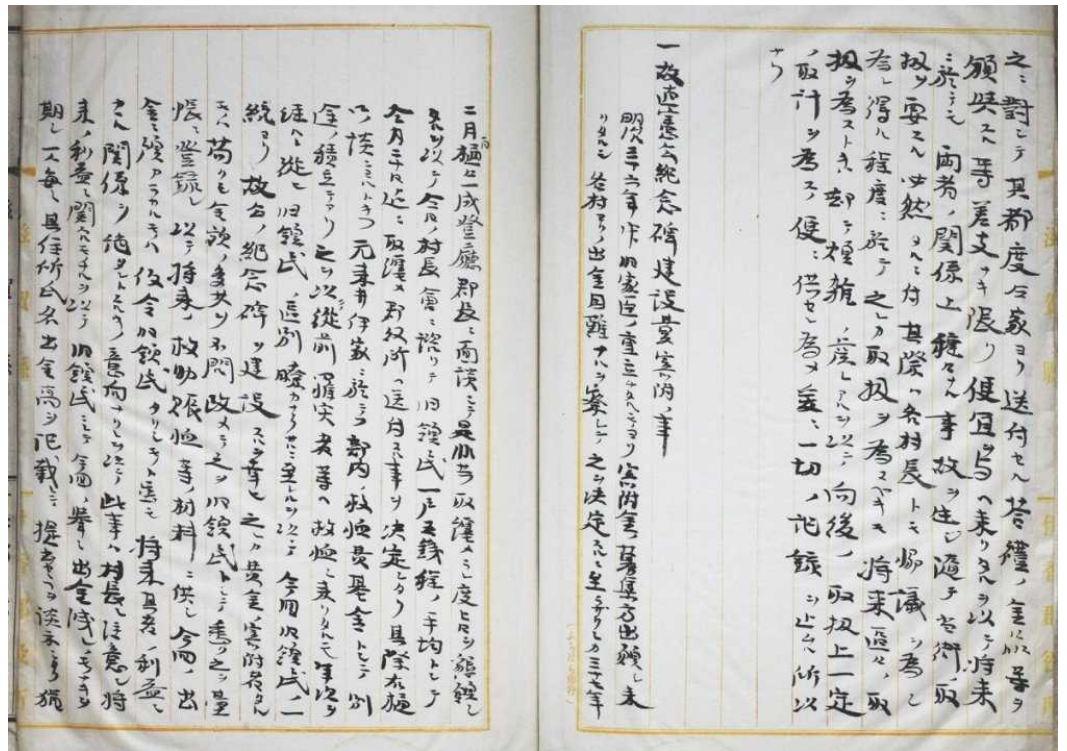 之ニ對シテ其都度仝家ヨリ送付セル答禮ノ金円等ヲ
領與スル等差支ナキ限リ便宜ヲ与ヘ来リタルヲ以テ将来
ニ於テモ両者ノ関係上種々ナル事故ヲ生シ適テ当衙ノ取
扱ヲ要スル必然タルニ付其際ハ各村長トモ協議ヲ為シ
為シ得ル程度ニ於テ之カ取扱ヲ為スベキモ将来区々ノ取
扱ヲ為ストキハ却テ煩雑ノ虞レアルヲ以テ向後ノ取扱上一定
ノ取計ヲ為スノ便ニ供セン為メ茲ニ一切ノ記録ヲ止ムル所以
ナリ
一故直憲公紀念碑建設費寄附ノ事
明治三十六年中旧家臣ノ重立タルモノヨリ寄附金募集方出願シ来
リタルモ各村ヨリノ出金困難ナルヲ察シテ之カ決定スルニ至ラザリシカ三十七年
二月樋口一成登廳郡長ニ面談シテ是非共取纏メラレ度旨ヲ懇請シ
来ルヲ以テ今月村長會ニ諮リテ旧領民一戸五銭程ノ平均トシテ
今月三十日迄ニ取纏メ郡役所ヘ送付スル事ヲ決定シタリ其際右樋
以テ談スルトキハ元来井伊家ニ於テ部内ノ救恤費基金トシテ別
途ノ積立アリ之ヲ以従前罹災者等ヘ救恤シ来リタルモ年次ヲ
経ルニ從ヒ旧領民ノ區別瞭カナラザルニ至レルヲ以テ今回旧領民一
統ヨリ故公ノ紀念碑ヲ建設スルヲ幸トシ之カ費金ノ寄附者タル
モノハ苟クモ金額ノ多少ヲ不問改メテ之ヲ旧領民トシテ優ニ之ヲ臺
帳ニ登録シ以テ将来ノ救助賑恤等ノ材料ニ供シ今回ノ出
金ニ預カラサルモノハ仮令旧領民タリシモノト雖モ将来其者ノ利益ニ
ハ関係ヲ絶タントスルノ意向ナリシヲ以テ此事ハ村長ニ注意シ将
来ノ利益ニ関スルモノナルヲ以テ旧領民ニシテ今回ノ挙ニ出金洩レノモノナキヲ
期シ一人毎ニ其住所氏名出金高ヲ記載シテ提出セラレ度談示シタリ猶